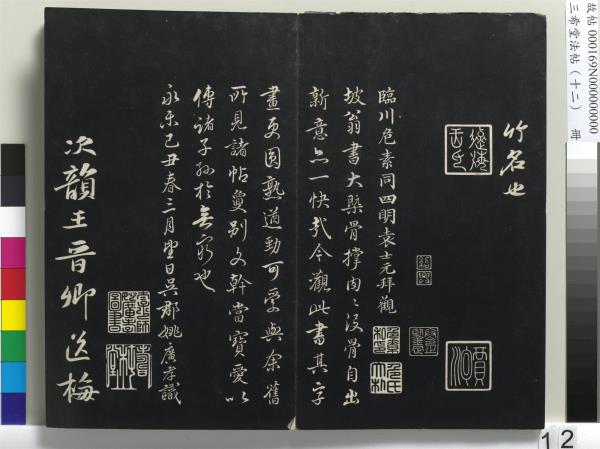 竹名也
臨川危素同四明袁士元拜觀
坡翁書大槩骨撐肉肉沒骨自出
新意亦一快哉今觀此書其字
畫更圓熟遒勁可愛與余舊
所見諸帖敻別文幹當寶愛以
傳諸子孫於無窮也
永樂己丑春三月望日吳郡姚廣孝識
次韻王晉卿送梅
故帖 000169N000000000
三希堂法帖（十二） 冊
12